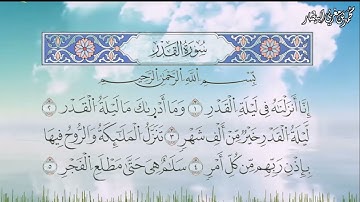 سُورَةُ القَدْرِ
بِسْمِ اللَّهِ الرَّحْمَٰنِ الرَّحِيمِ
إِنَّا أَنزَلْنَٰهُ فِى لَيْلَةِ الْقَدْرِ ١ وَمَا أَدْرَىٰكَ مَا لَيْلَةُ الْقَدْرِ ٢
لَيْلَةُ الْقَدْرِ خَيْرٌ مِّنْ أَلْفِ شَهْرٍ ٣ تَنَزَّلُ الْمَلَٰٓئِكَةُ وَالرُّوحُ فِيهَا
بِإِذْنِ رَبِّهِم مِّن كُلِّ أَمْرٍ ٤ سَلَٰمٌ هِىَ حَتَّىٰ مَطْلَعِ الْفَجْرِ ٥